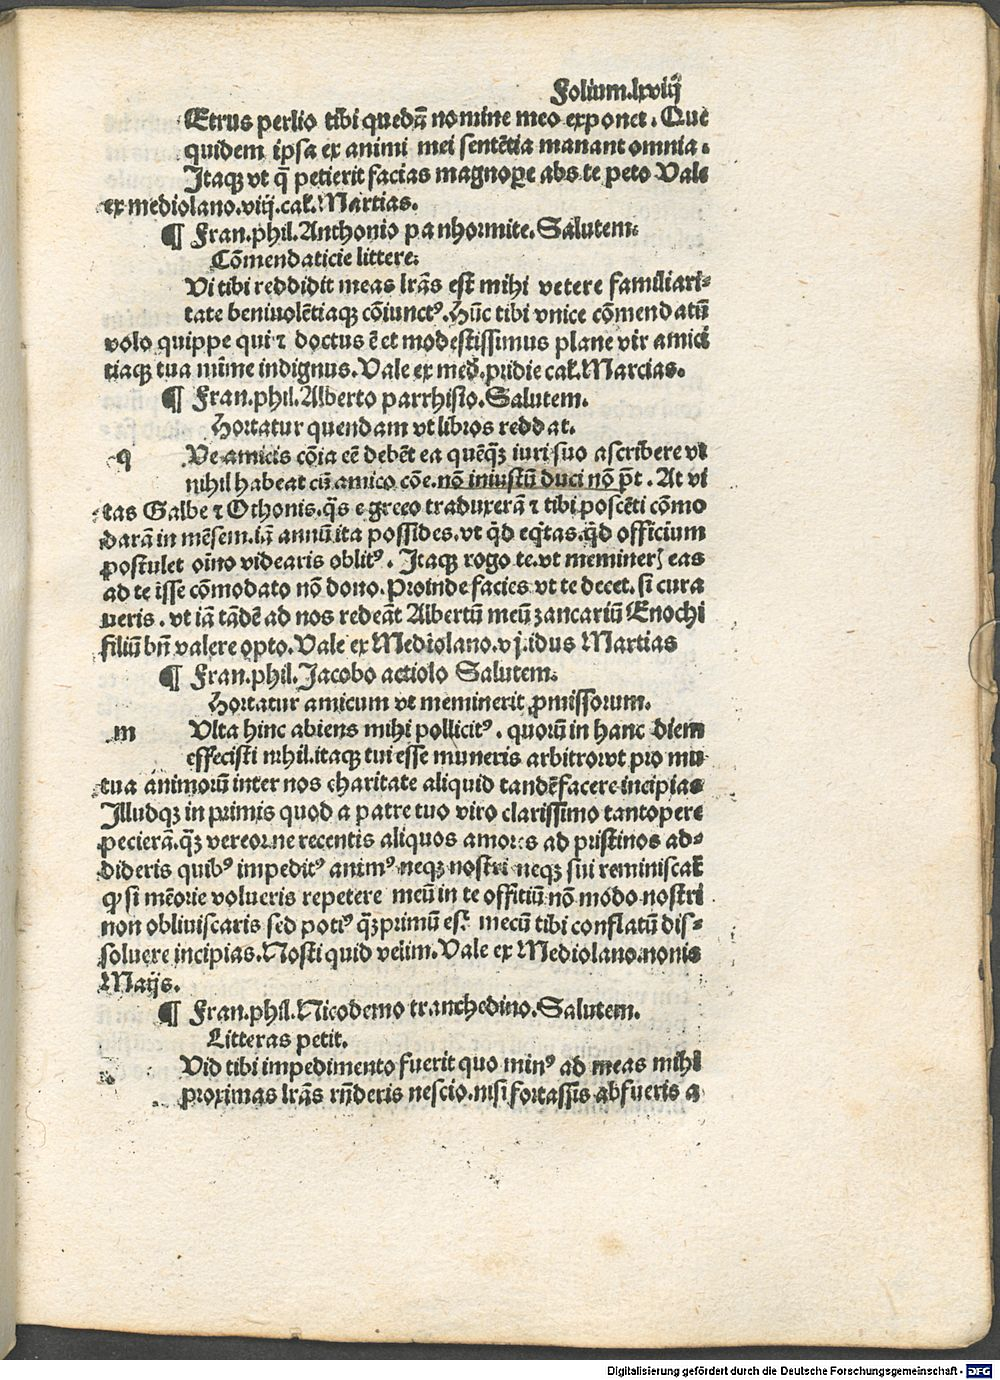 Folium.lxviijͦ
Etrus perlio tibi quedā nomine meo exponet. Que
quidem ipsa ex animi mei sentētia manant omnia.
Itaqꝫ vt q̄ petierit facias magnopere abs te peto Vale
ex mediolano.viij.cal̄.Martias.
¶ Fran.phil.Anthonio panhormite.Salutem.
Cōmendaticie littere.
Vi tibi reddidit meas lr̄as est mihi vetere familiari⸗
tate beniuolētiaqꝫ cōiunctꝰ.Hūc tibi vnice cōmendatū
volo quippe qui ⁊ doctus ē et modestissimus plane vir amici
tiaqꝫ tua mīme indignus.Vale ex med̄.pridie cal̄.Marcias.
¶ Fran.phil.Alberto parrhisio.Salutem.
Hortatur quendam vt libros reddat.
q Ve amicis cōia eē debēt ea quēqꝫ iuri suo ascribere vi
nihil habeat cū amico cōe.nō iniustū duci nō p̄t. At vi
tas Galbe ⁊ Othonis.q̄s e greco traduxerā ⁊ tibi poscēti cōmo
darā in mēsem.iā annū ita possides.vt q̄d eq̄tas.q̄d officium
postulet oīno videaris oblitꝰ. Itaqꝫ rogo te.vt memineris eas
ad te isse cōmodato nō dono.Proinde facies vt te decet.si cura
ueris. vt iā tādē ad nos redeāt Albertū meū zancariū Enochi
filiū bn̄ valere opto.Vale ex Mediolano.vj.idus Martias
¶ Fran.phil.Jacobo actiolo Salutem.
Hortatur amicum vt meminerit ꝓmissorum.
m Vlta hinc abiens mihi pollicitꝰ. quorū in hanc diem
effecisti nihil.itaqꝫ tui esse muneris arbitror.vt pro mu
tua animorū inter nos charitate aliquid tandē facere incipias
Illudqꝫ in primis quod a patre tuo viro clarissimo tantopere
pecierā.qꝫ vereor.ne recentis aliquos amores ad pristinos ad⸗
dideris quibꝰ impeditꝰ animꝰ neqꝫ nostri neqꝫ sui reminiscat̄
ꝙ si mēorie volueris repetere meū in te offitiū nō modo nostri
non obliuiscaris sed potiꝰ q̄ꝫprimū est mecū tibi conflatū dis⸗
soluere incipias.Nosti quid velim.Vale ex Mediolano.nonis
Maijs.
¶ Fran.phil.Nicodemo tranchedino.Salutem.
Litteras petit.
Vid tibi impedimento fuerit quo minꝰ ad meas mihi
proximas lr̄as rn̄deris nescio.nisi fortassis abfueris a
Digitalisierung gefördert durch die Deutsche Forschungsgemeinschaft - DFG